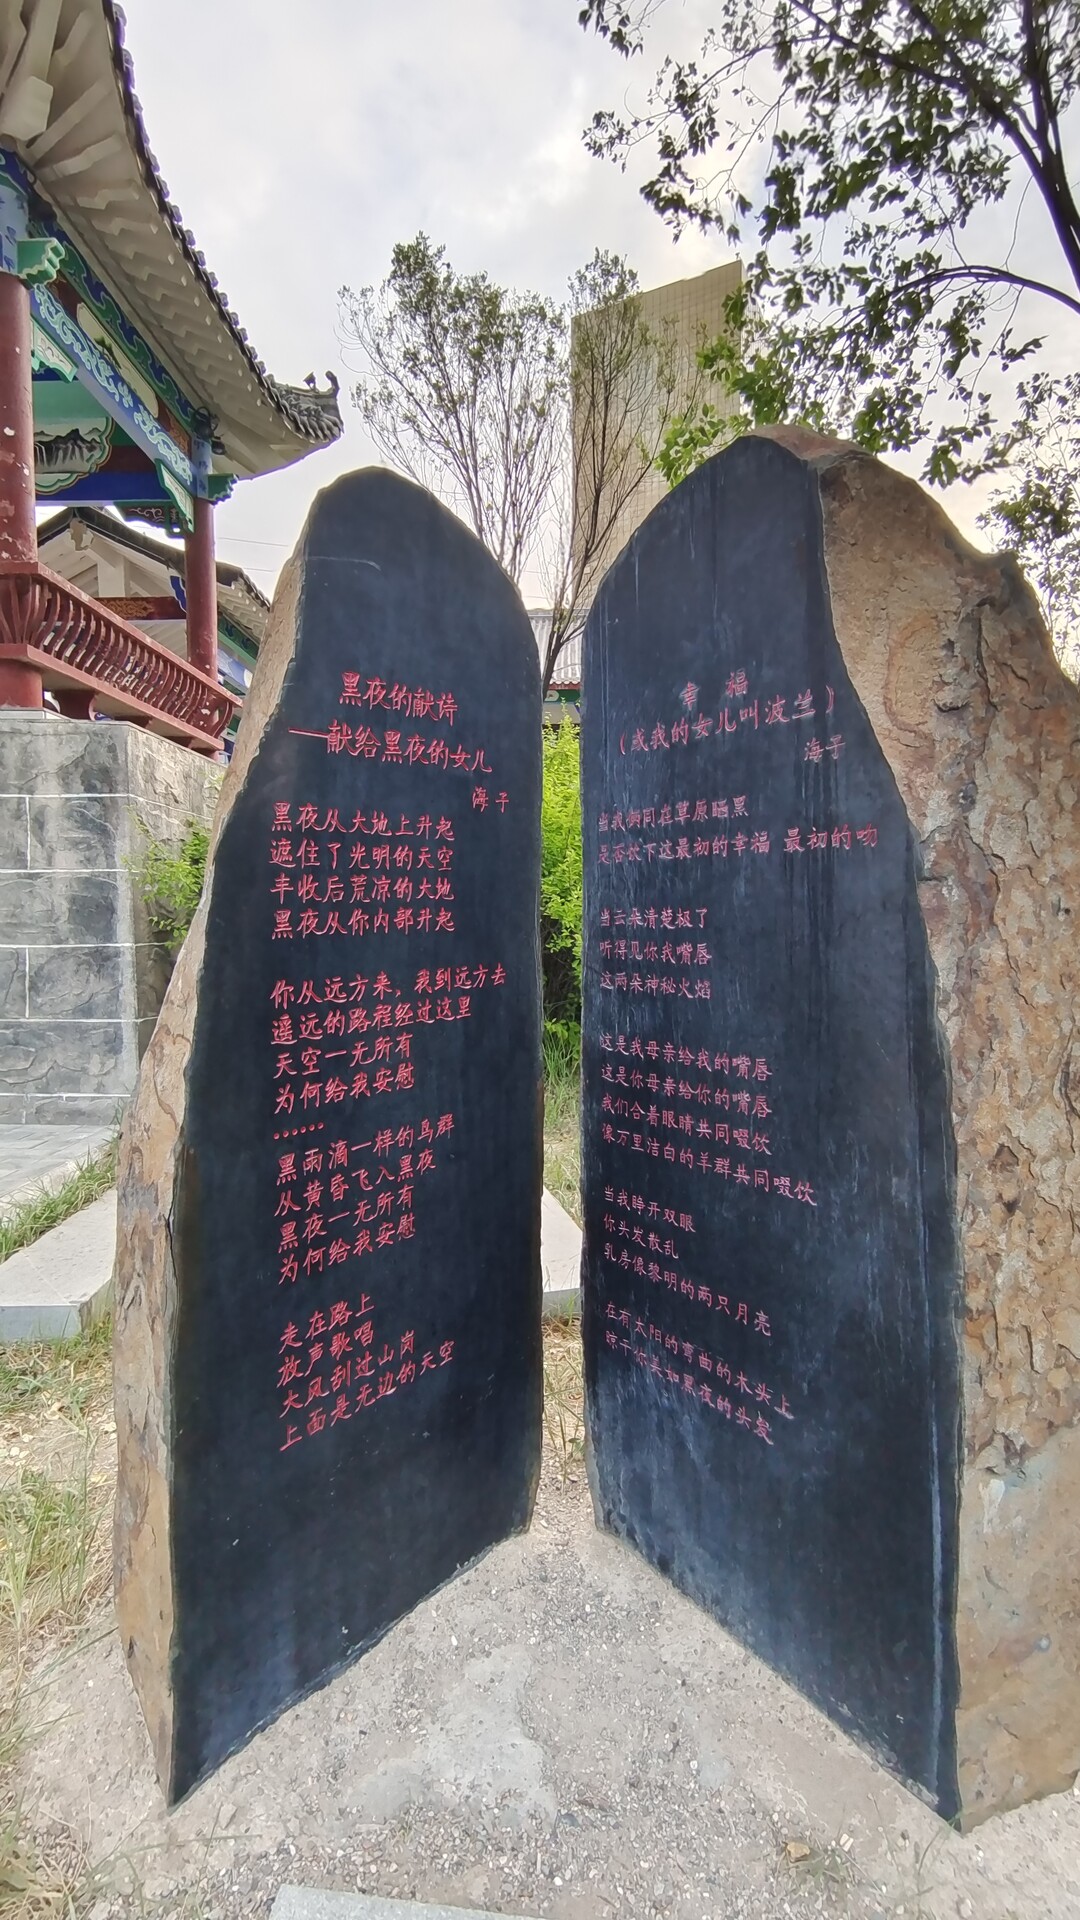 黑夜的献诗
——献给黑夜的女儿
海子
黑夜从大地上升起
遮住了光明的天空
丰收后荒凉的大地
黑夜从你内部升起
你从远方来，我到远方去
遥远的路程经过这里
天空一无所有
为何给我安慰
……
黑雨滴一样的鸟群
从黄昏飞入黑夜
黑夜一无所有
为何给我安慰
走在路上
放声歌唱
大风刮过山岗
上面是无边的天空
幸 福
（或我的女儿叫波兰）
海子
当我俩同在草原晒黑
是否饮下这最初的幸福 最初的吻
当云朵清楚极了
听得见你我嘴唇
这两朵神秘火焰
这是我母亲给我的嘴唇
这是你母亲给你的嘴唇
我们合着眼睛共同啜饮
像万里洁白的羊群共同啜饮
当我睁开双眼
你头发散乱
乳房像黎明的两只月亮
在有太阳的弯曲的木头上
晾干你美如黑夜的头发